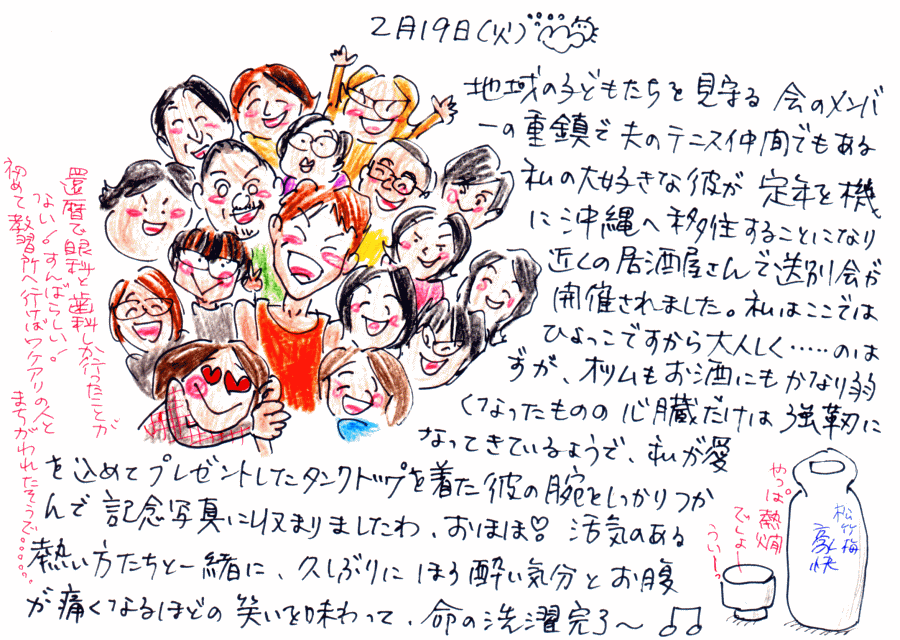 2月19日(火)
地域の子どもたちを見守る会のメンバ
ーの重鎮で夫のテニス仲間でもある
私の大好きな彼が定年を機
に沖縄へ移住することになり
近くの居酒屋さんで送別会が
開催されました。私はここでは
ひよっこですから大人しく……のは
ずが、オツムもお酒にもかなり弱
くなったものの心臓だけは強靭に
なってきているようで、私が愛
を込めてプレゼントしたタンクトップを着た彼の腕をしっかりつか
んで記念写真に収まりましたわ、おほほ♡ 活気のある
熱い方たちと一緒に、久しぶりにほろ酔い気分とお腹
が痛くなるほどの笑いを味わって、命の洗濯完了〜♫
還暦で眼科と歯科しか行ったことが
ない!すんばらしい!
初めて教習所へ行けばワケアリの人と
まちがわれたそうで……
やっぱ熱燗
でしょー
うぃーっ
松竹梅
豪快